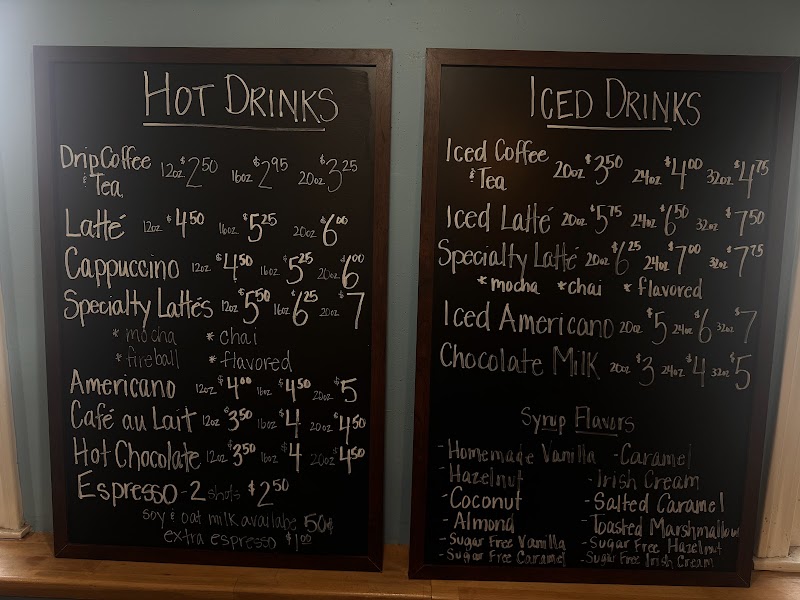 HOT DRINKS
Drip Coffee & Tea 12oz $2.50 16oz $2.95 20oz $3.25
Latté 12oz $4.50 16oz $5.25 20oz $6.00
Cappuccino 12oz $4.50 16oz $5.25 20oz $6.00
Specialty Lattés 12oz $5.50 16oz $6.25 20oz $7
* mocha * chai
* fireball * flavored
Americano 12oz $4.00 16oz $4.50 20oz $5
Café au Lait 12oz $3.50 16oz $4 20oz $4.50
Hot Chocolate 12oz $3.50 16oz $4 20oz $4.50
Espresso - 2 shots $2.50
soy & oat milk availabe 50¢
extra espresso $1.00
ICED DRINKS
Iced Coffee & Tea 20oz $3.50 24oz $4.00 32oz $4.75
Iced Latté 20oz $5.75 24oz $6.50 32oz $7.50
Specialty Latté 20oz $6.25 24oz $7.00 32oz $7.75
* mocha * chai * flavored
Iced Americano 20oz $5 24oz $6 32oz $7
Chocolate Milk 20oz $3 24oz $4 32oz $5
Syrup Flavors
- Homemade Vanilla - Caramel
- Hazelnut - Irish Cream
- Coconut - Salted Caramel
- Almond - Toasted Marshmallow
- Sugar Free Vanilla - Sugar Free Hazelnut
- Sugar Free Caramel - Sugar Free Irish Cream